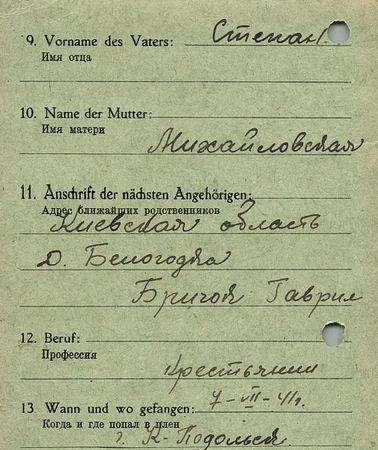 9. Vorname des Vaters: Степан
Имя отца
10. Name der Mutter:
Имя матери
Михайловская
11. Anschrift der nächsten Angehörigen:
Адрес ближайших родственников
Киевская область
д. Белогодка
Бричой Гаврил
12. Beruf:
Профессия
Крестьянин
13 Wann und wo gefangen: 7-VII-41г.
Когда и где попал в плен
г. К-Подольск.